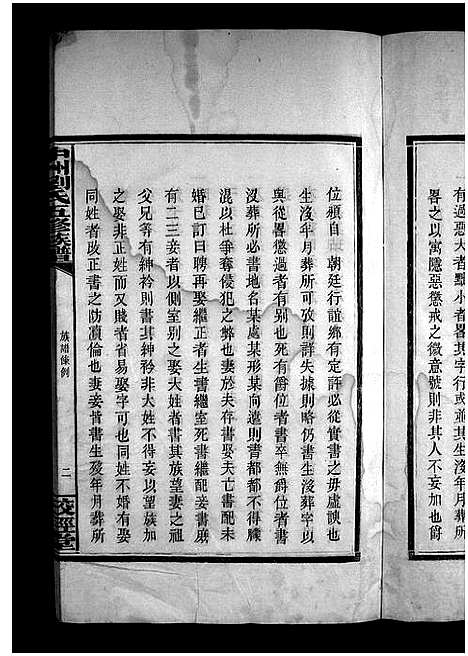 有過惡大者黜小者畧其字行或並其生年月
畧之以寓隱惡懲戒之微意號則非其人不妄加也爵
位頻自朝廷行誼鄉有定評必從實書之毋虛諛也
生沒年月葬所可攷則詳失據則略仍書生沒葬字以
與從畧懲過者有別也死有爵位者書卒無爵位者書
沒葬所必書地名某處某形某向遠則書都都不得朦
混以杜爭奪侵犯之弊也妻於夫存書娶夫亡書配未
婚已訂曰聘再娶繼正者生書繼室死書繼配妾書簉
有二三妾者以側室別之娶大姓者書其族望妻之祖
父兄等有紳衿則書其紳衿非大姓不得妄以望族加
之娶非正姓而又賤者省易娶字可也同姓不婚有娶
同姓者改正書之防瀆倫也妻妾皆書生歿年月葬所
中州劉氏五修族譜
族譜條例
二
校經堂